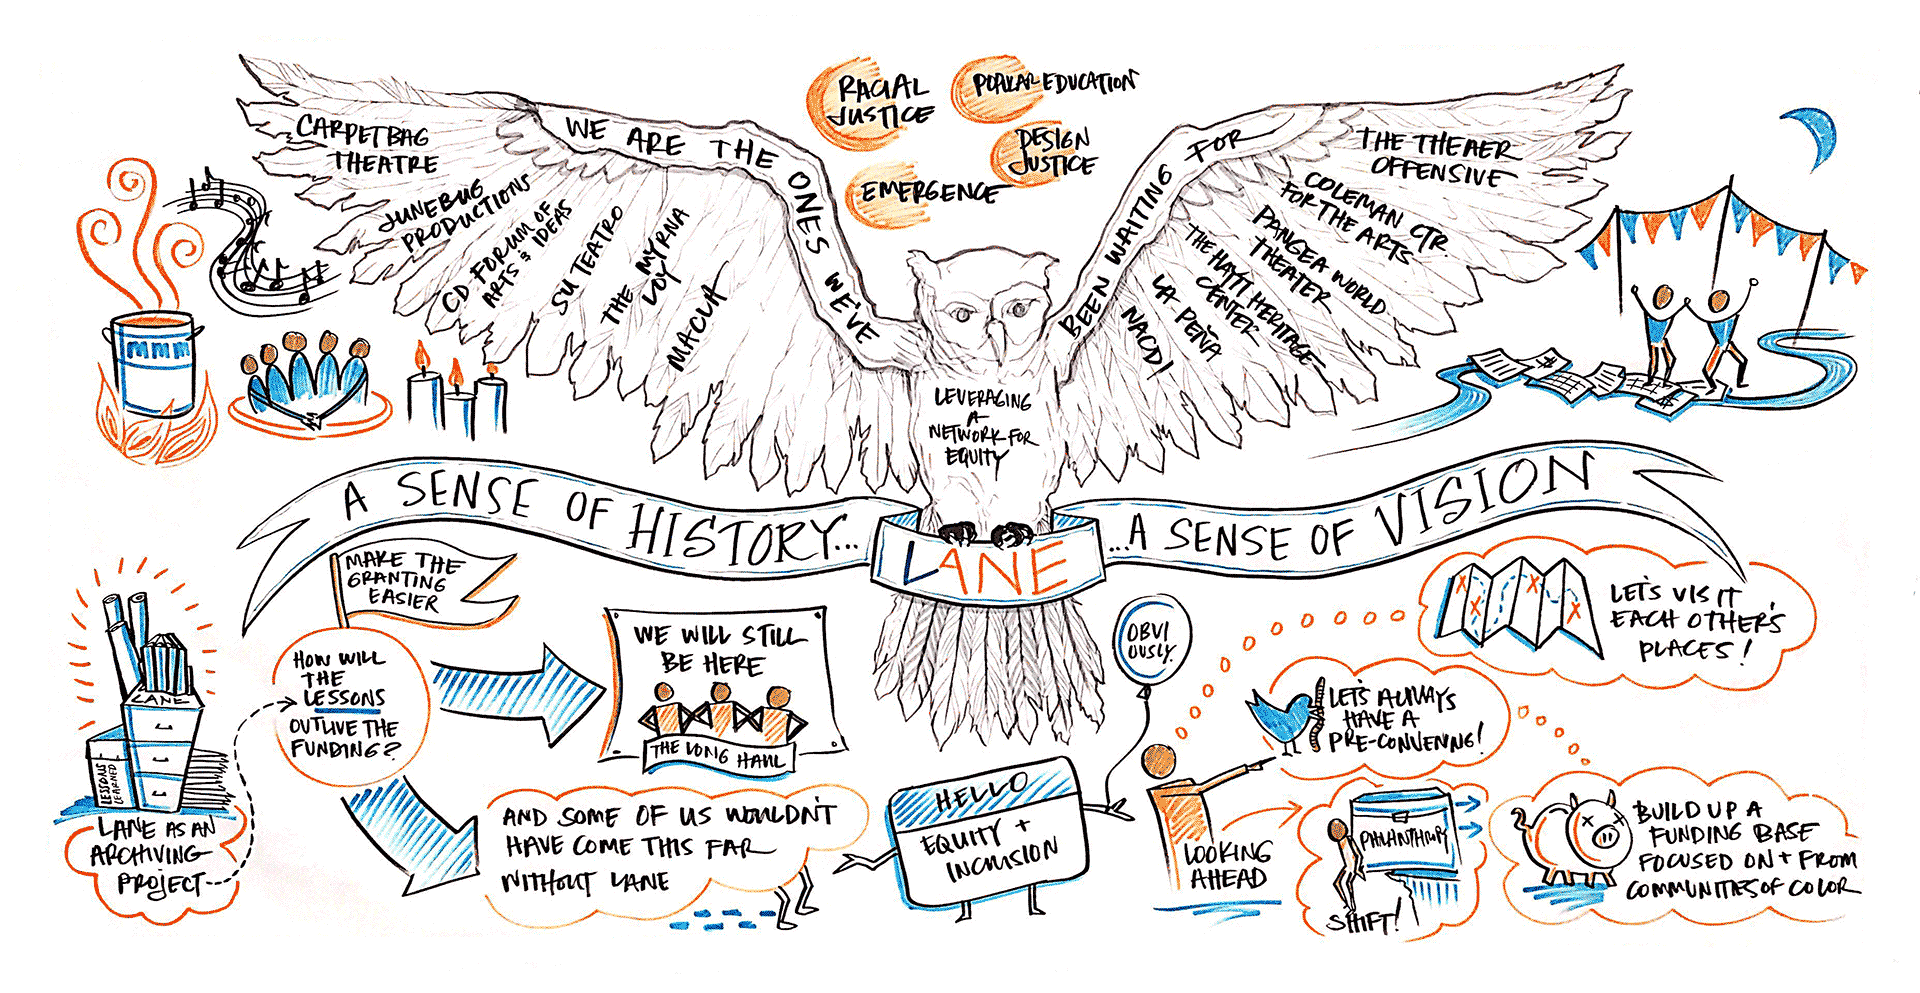 RACIAL
JUSTICE
POPULAR EDUCATION
DESIGN
JUSTICE
EMERGENCE
WE ARE THE ONES WE'VE
BEEN WAITING FOR
CARPETBAG
THEATRE
JUNEBUG
PRODUCTIONS
CD FORUM OF
ARTS & IDEAS
SU TEATRO
THE MYRNA
LOY
MACLA
THE THEATER
OFFENSIVE
COLEMAN CTR.
FOR THE ARTS
PANGEA WORLD
THEATER
THE HAYTI HERITAGE
CENTER
LA PEÑA
NACDI
MMM
LEVERAGING
A
NETWORK FOR
EQUITY
A SENSE OF HISTORY...
LANE
...A SENSE OF VISION
MAKE THE
GRANTING
EASIER
HOW WILL
THE
LESSONS
OUTLIVE THE
FUNDING?
LANE
LESSONS
LEARNED
LANE AS AN
ARCHIVING
PROJECT
WE WILL STILL
BE HERE
THE LONG HAUL
AND SOME OF US WOULDN'T
HAVE COME THIS FAR
WITHOUT LANE
OBVI
OUSLY.
HELLO
EQUITY +
INCLUSION
LOOKING
AHEAD
LET'S VISIT
EACH OTHER'S
PLACES!
LET'S ALWAYS
HAVE A
PRE-CONVENING!
PHILANTHROPY
SHIFT!
BUILD UP A
FUNDING BASE
FOCUSED ON + FROM
COMMUNITIES OF COLOR